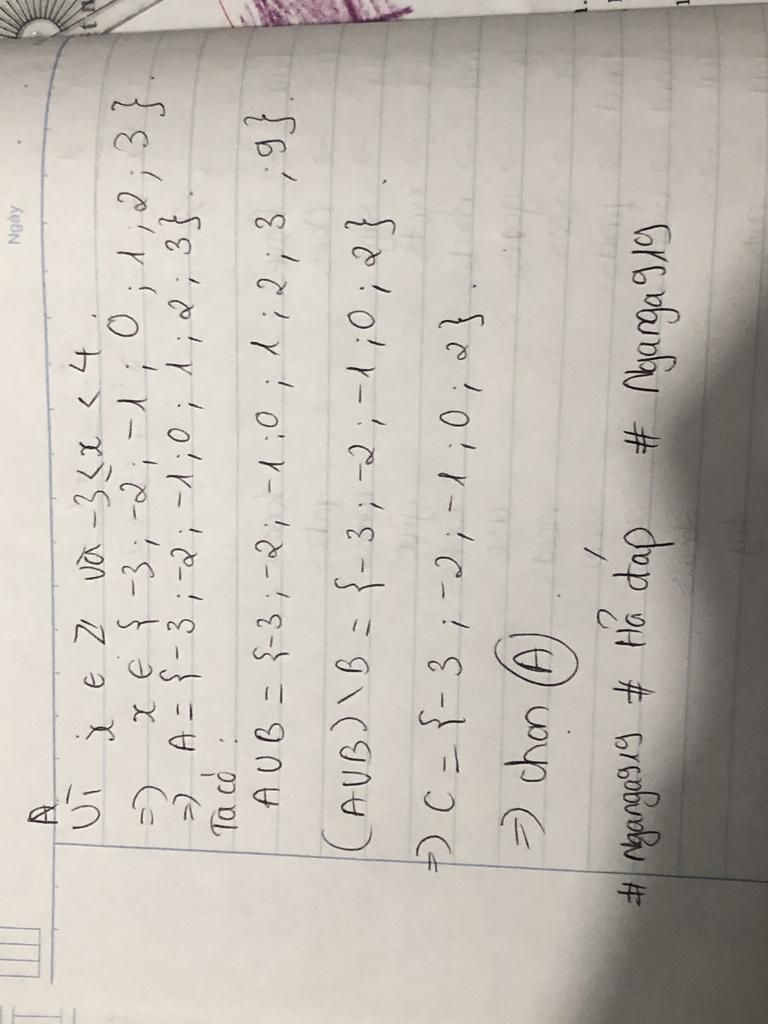 Ngày
A
Vì x ∈ Z và -3 ≤ x < 4.
=) x ∈ {-3 ; -2 ; -1 ; 0 ; 1 ; 2 ; 3}.
=) A = {-3 ; -2 ; -1 ; 0 ; 1 ; 2 ; 3}.
Ta có :
A∪B = {-3 ; -2 ; -1 ; 0 ; 1 ; 2 ; 3 ; 9}.
(A∪B) \ B = {-3 ; -2 ; -1 ; 0 ; 2}.
=) C = {-3 ; -2 ; -1 ; 0 ; 2}.
=) chọn A.
# nganga919 # Hỏi đáp # Nganga919